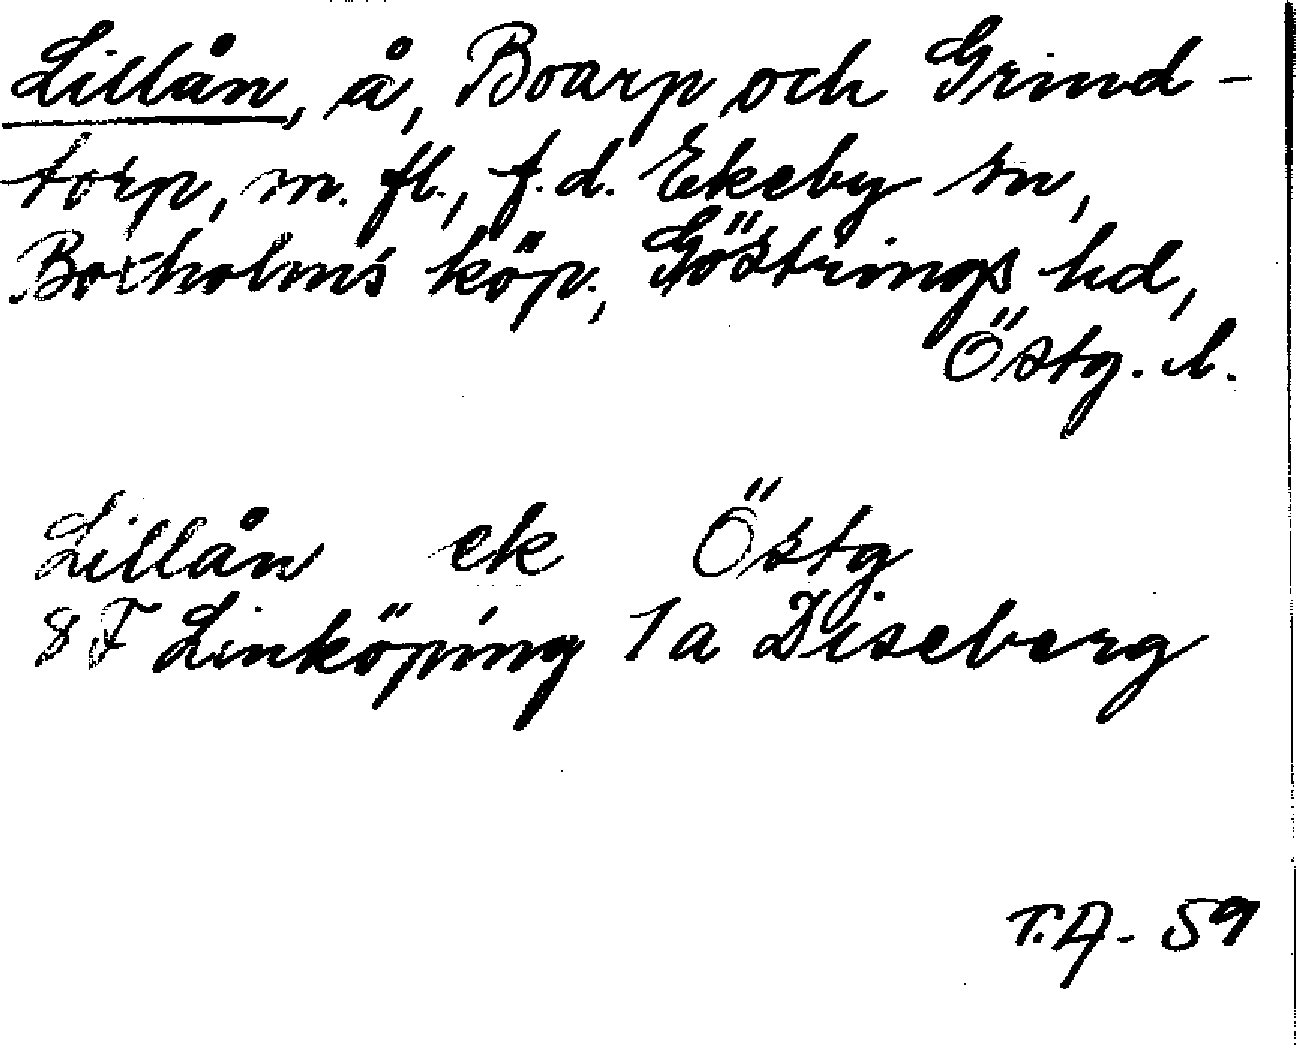 Lillån, å, Boarp och Grind-
torp, m. fl., f.d. Ekeby sn,
Boxholms köp., Göstrings hd,
Östg. l.
Lillån ek Östg
8 F Linköping 1a Diseberg
T.A. 59